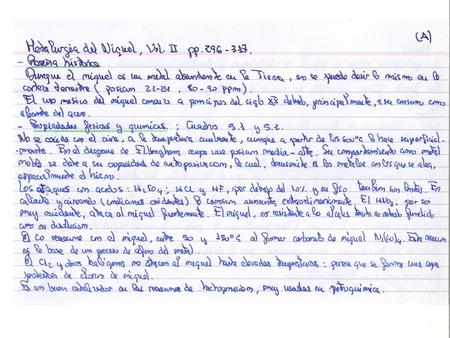 (A)
Metalurgia del Niquel, Vol. II pp. 296-317.
- Reseña histórica
Aunque el niquel es un metal abundante en la Tierra, no se puede decir lo mismo en la
corteza terrestre (posicion 22-24, 80-90 ppm).
El uso masivo del niquel comenzo a principios del siglo XX debido, principalmente, a su consumo como
aleante del acero.
- Propiedades fisicas y quimicas: Cuadros 5.1 y 5.2.
No se oxida con el aire, a la temperatura ambiente, aunque a partir de los 500°C lo hace superficial-
mente. En el diagrama de Ellingham ocupa una posicion media-alta. Su comportamiento como metal
noble se debe a su capacidad de autopasivacion, la cual, transmite a los metales con los que se alea,
especialmente el hierro.
Los ataques con acidos: H2SO4; HCl y HF, por debajo del 10% y en frio también son lentos. En
caliente y aireando (condiciones oxidantes) la corrosion aumenta extraordinariamente. El HNO3, por ser
muy oxidante, ataca al niquel fuertemente. El niquel, es resistente a los alcalis tanto en estado fundido
como en disolucion.
El CO reacciona con el niquel, entre 50 y 150°C al formar carbonilo de niquel Ni(CO)4. Esta reaccion
es la base de un proceso de afino del metal.
El Cl2 y otros halogenos no atacan al niquel hasta elevadas temperaturas: parece que se forma una capa
protectora de cloruro de niquel.
Es un buen catalizador en las reacciones de hidrogenacion, muy usadas en petroquimica.